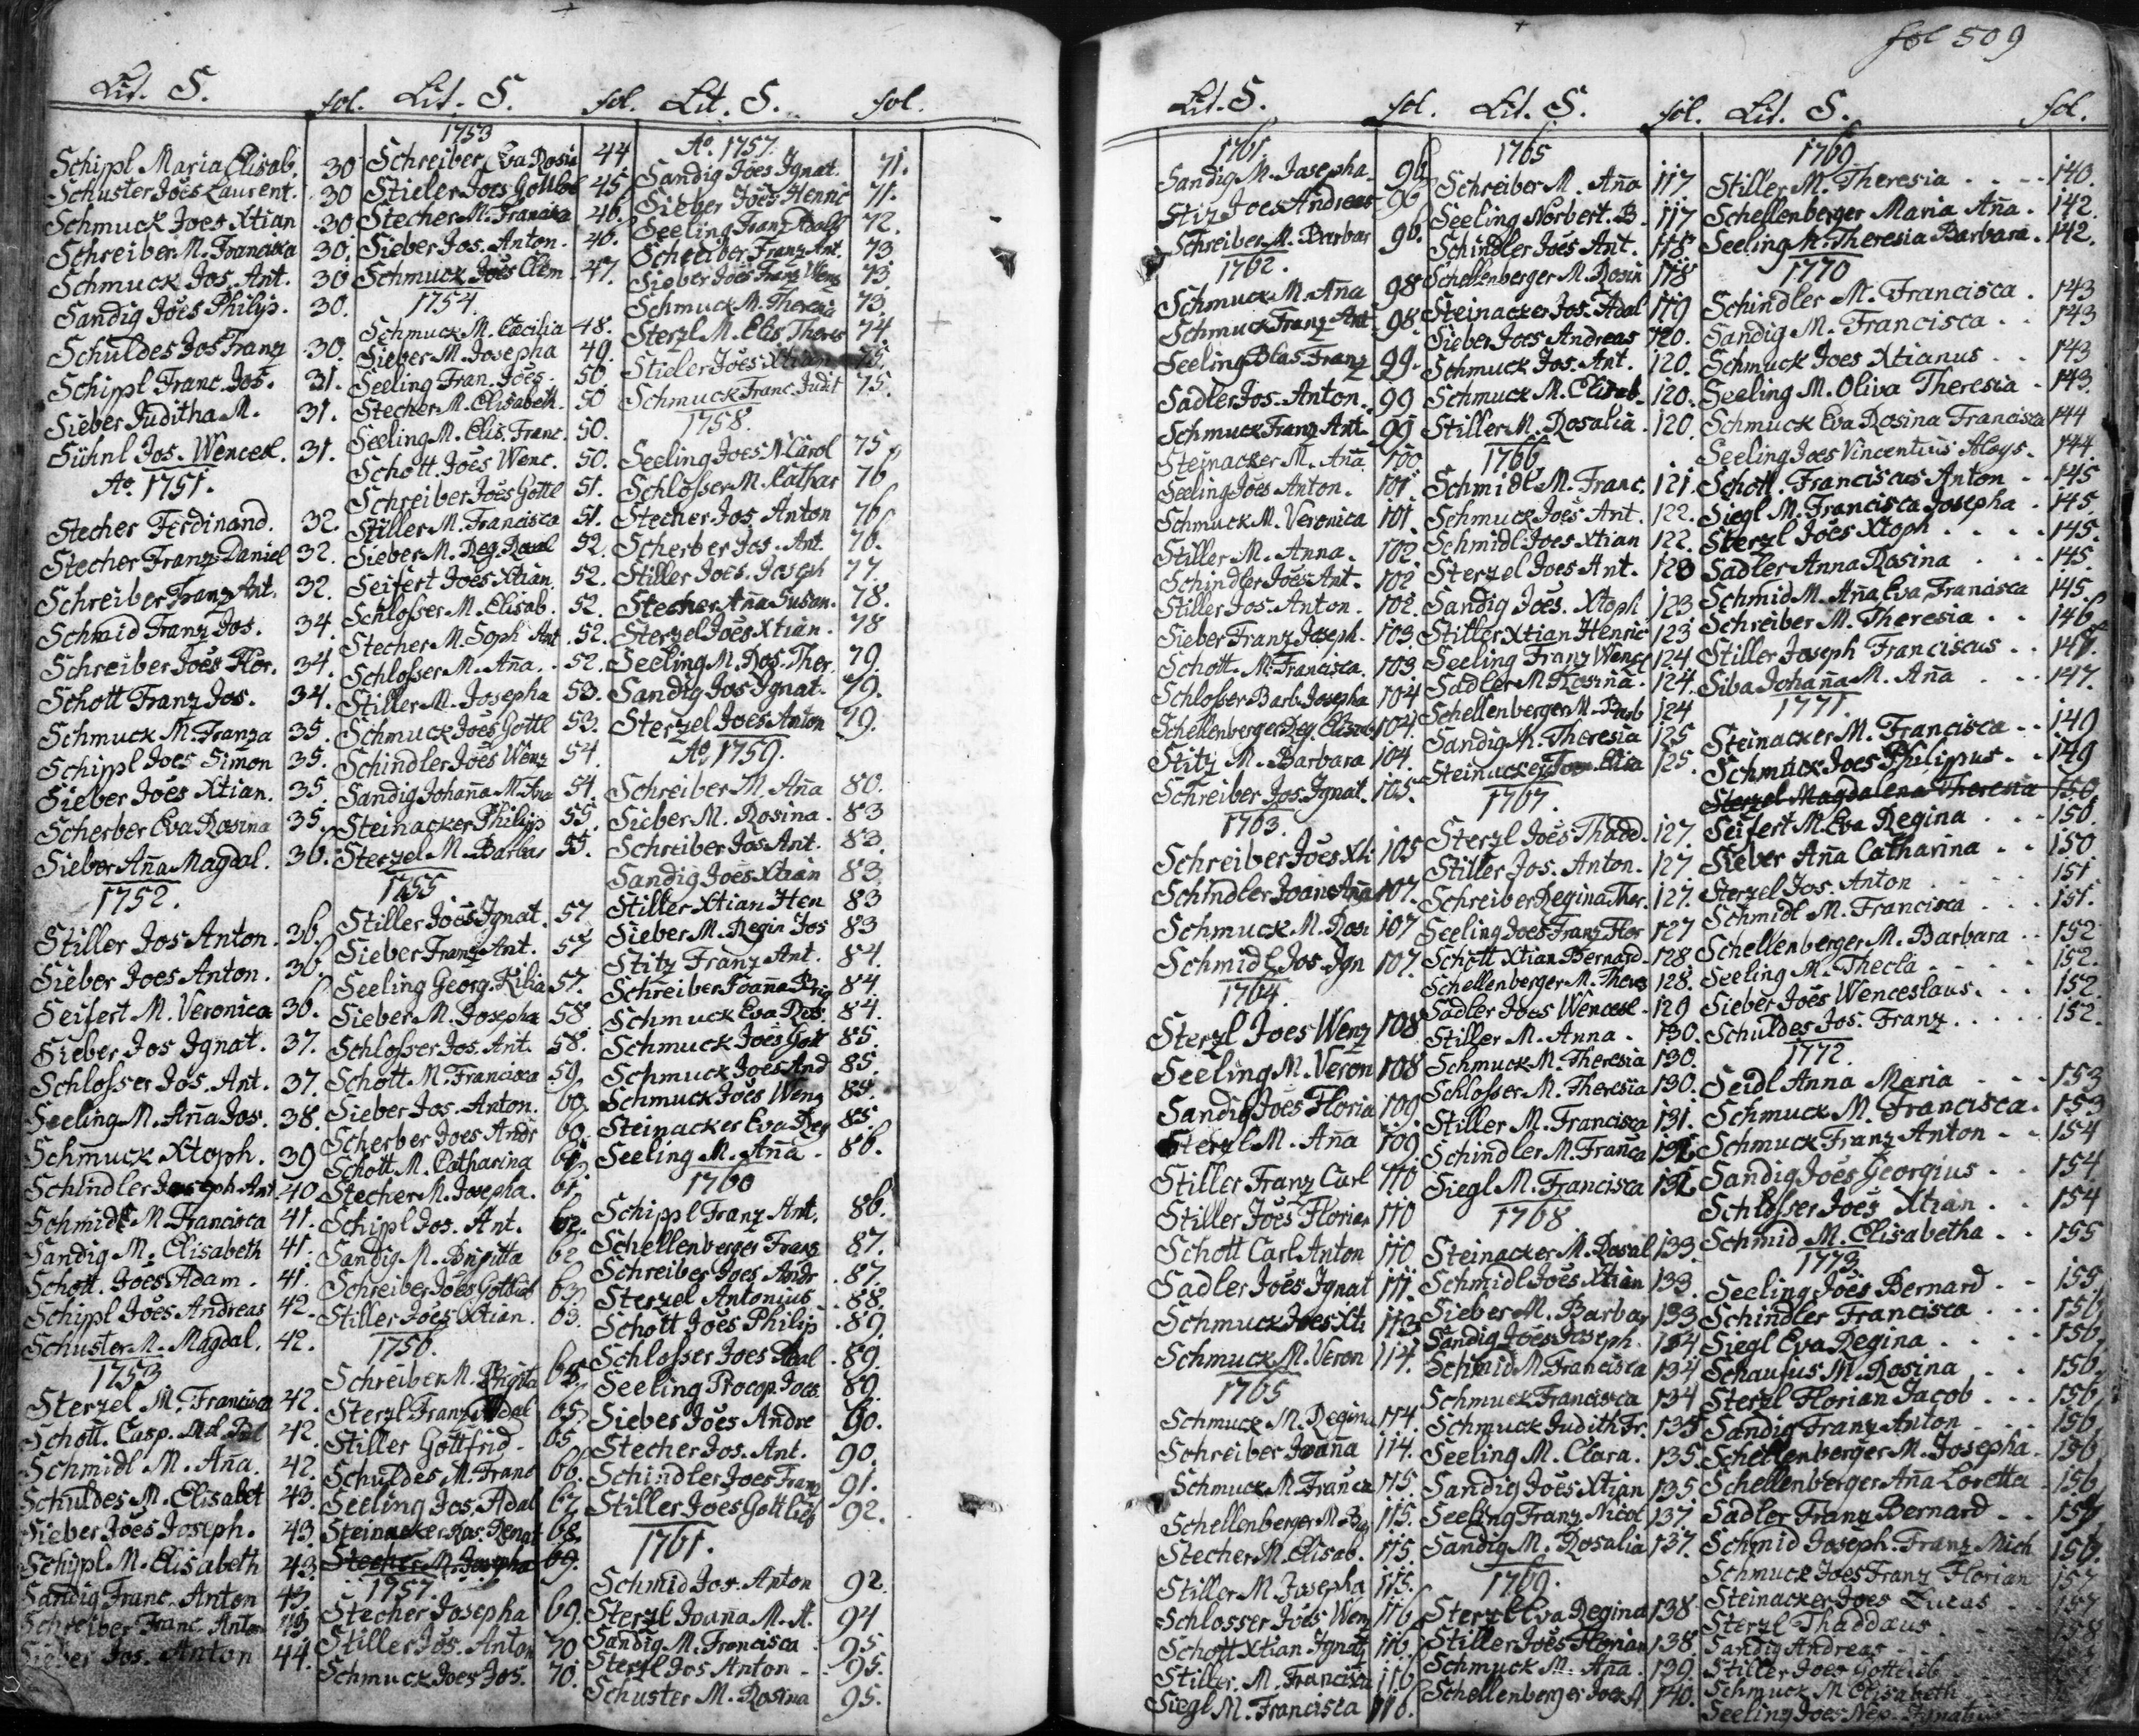 fol 509
Lit. S. fol.
Schippl Maria Elisab. 30
Schuster Joes Laurent. 30
Schmuck Joes Xtian 30
Schreiber M. Francisca 30.
Schmuck Jos. Ant. 30
Sandig Joes Philip. 30.
Schuldes Jos Franz 30.
Schippl Franc. Jos. 31.
Sieber Juditha M. 31.
Sühnl Jos. Wencesl. 31.
Ao. 1751.
Stecher Ferdinand. 32.
Stecher Franz Daniel 32.
Schreiber Franz Ant. 32.
Schmid Franz Jos. 34.
Schreiber Joes Flor. 34.
Schott Franz Jos. 34.
Schmuck M. Franza 35.
Schippl Joes Simon 35.
Sieber Joes Xtian. 35.
Scherber Eva Rosina 35.
Sieber Aña Magdal. 36.
1752.
Stiller Jos Anton. 36.
Sieber Joes Anton. 36.
Seifert M. Veronica 36.
Sieber Jos Ignat. 37.
Schlosser Jos. Ant. 37.
Seeling M. Aña Jos. 38.
Schmuck Xtoph. 39
Schindler Joseph Ant 40
Schmidt M. Francisca 41.
Sandig M. Elisabeth 41.
Schott. Joes Adam. 41.
Schippl Joes Andreas 42.
Schuster M. Magdal. 42.
1753
Sterzel M. Francisca 42.
Schott. Casp. 42.
Schmidl M. Aña. 42.
Schuldes M. Elisabet 43.
Sieber Joes Joseph. 43.
Schippl M. Elisabeth 43.
Sandig Franc. Anton 43.
Schreiber Franc Anton 43
Sieber Jos. Anton 44.
Lit. S. fol.
1753
Schreiber Eva Rosin 44
Stieler Joes Gottlob 45
Stecher M. Francisca 46.
Sieber Jos. Anton. 46.
Schmuck Joes Clem 47.
1754.
Schmuck M. Cæcilia 48.
Sieber M. Josepha 49.
Seeling Fran. Joes. 50
Stecher M. Elisabeth. 50
Seeling M. Elis. Franc. 50.
Schott Joes Wenc. 50.
Schreiber Joes Gottl 51.
Stiller M. Francisca 51.
Sieber M. Reg. 52.
Seifert Joes Xtian. 52.
Schlosser M. Elisab. 52.
Stecher M. Soph Ant. 52.
Schlosser M. Aña. 52.
Stiller M. Josepha 53.
Schmuck Joes Gottl 53.
Schindler Joes Wenz 54.
Sandig Johaña M. 54.
Steinacker Philip 55.
Sterzel M. Barbar 55.
1755
Stiller Joes Ignat. 57
Sieber Franz Ant. 57
Seeling Georg. Kilia 57.
Sieber M. Josepha 58
Schlosser Jos. Ant. 58.
Schott M. Francisca 59.
Sieber Jos. Anton. 60.
Scherber Joes Andr 60.
Schott M. Catharina 61.
Stecher M. Josepha. 61.
Schippl Jos. Ant. 62.
Sandig M. Brigitta 62
Schreiber Joes Gottlieb 63.
Stiller Joes Xtian. 63.
1756.
Schreiber M. Brigita
Sterzl Franz Adal 65
Stiller Gottfrid. 65
Schuldes M. Franc 66.
Seeling Jos. Adal 67.
Steinacker Ros. Renat 68.
Stecher M. Josepha 69.
1757.
Stecher Josepha 69.
Stiller Jos. Anton 70
Schmuck Joes Jos. 70.
Lit. S. fol.
Ao. 1757.
Sandig Joes Ignat. 71.
Sieber Joes Henric 71.
Seeling Franz Adalb 72.
Schreiber Franz Ant. 73
Sieber Joes Franz Wenz 73.
Schmuck M. Theresia 73.
Sterzl M. Elis Theres 74.
Stieler Joes Xtian 75.
Schmuck Franc. Judit 75.
1758.
Seeling Joes N. Carol 75
Schlosser M. Cathar 76
Stecher Jos. Anton 76
Scherber Jos. Ant. 76.
Stiller Joes. Joseph 77.
Stecher Aña Susan. 78.
Sterzel Joes Xtian. 78
Seeling M. Ros. Ther. 79.
Sandig Jos Ignat. 79.
Sterzel Joes Anton 79.
Ao. 1759.
Schreiber M. Aña 80.
Sieber M. Rosina. 83
Schreiber Jos Ant. 83.
Sandig Joes Xtian 83
Stiller Xtian Hen 83
Sieber M. Regin Jos 83
Stitz Franz Ant. 84.
Schreiber Joaña Brig 84
Schmuck Eva Ros. 84.
Schmuck Joes Gott 85.
Schmuck Joes And 85.
Schmuck Joes Wenz 85.
Steinacker Eva Reg 85.
Seeling M. Aña. 86.
1760
Schippl Franz Ant. 86.
Schellenberger Franz 87.
Schreiber Joes Andr. 87.
Sterzel Antonius. 88.
Schott Joes Philip. 89.
Schlosser Joes Adal. 89.
Seeling Procop. Joes 89.
Sieber Joes Andre 90.
Stecher Jos. Ant. 90.
Schindler Joes Franz 91.
Stiller Joes Gottlieb 92.
1761.
Schmid Jos. Anton 92.
Sterzl Joaña M. A. 94
Sandig M. Francisca 95
Sterzl Jos Anton 95.
Schuster M. Rosina 95.
Lit. S. fol.
1761.
Sandig M. Josepha 96
Stiz Joes Andreas 96
Schreiber M. Barbar 96.
1762.
Schmuck M. Aña 98
Schmuck Franz Ant 98.
Seeling Blas. Franz 99.
Sadler Jos. Anton. 99
Schmuck Franz Ant. 99
Steinacker M. Aña. 100
Seeling Joes Anton. 101
Schmuck M. Veronica 101.
Stiller M. Anna. 102
Schindler Joes Ant. 102
Stiller Jos. Anton. 102.
Sieber Franz Joseph. 103.
Schott. M. Francisca. 103.
Schlosser Barb. Josepha 104
Schellenberger Reg. Elisab 104.
Stitz M. Barbara 104.
Schreiber Jos. Ignat. 105.
1763.
Schreiber Joes Xti 105
Schindler Joañ Aña 107.
Schmuck M. Rosi 107
Schmidl Jos. Ign 107.
1764.
Sterzl Joes Wenz 108
Seeling M. Veron 108
Sandig Joes Floria 109.
Sterzl M. Aña 109.
Stiller Franz Carl 110
Stiller Joes Florian 110
Schott Carl Anton 110.
Sadler Joes Ignat 111.
Schmuck Joes Xti 113
Schmuck M. Veron 114.
1765
Schmuck M. Regina 114.
Schreiber Joaña 114.
Schmuck M. Franca 115.
Schellenberger M. 115.
Stecher M. Elisab. 115.
Stiller M. Josepha 115.
Schlosser Joes Wenz 116
Schott Xtian Ignatz 116.
Stiller. M. Francisca 116
Siegl M. Francisca 116.
Lit. S. fol.
1765
Schreiber M. Aña 117
Seeling Norbert. B. 117
Schindler Joes Ant. 118
Schellenberger M. Rosin 118
Steinacker Jos. Adal 119
Sieber Joes Andreas 120.
Schmuck Jos. Ant. 120.
Schmuck M. Elisab. 120.
Stiller M. Rosalia. 120.
1766
Schmidl M. Franc. 121.
Schmuck Joes Ant. 122.
Schmidl Joes Xtian 122.
Sterzel Joes Ant. 123
Sandig Joes. Xtoph 123
Stiller Xtian Henric 123
Seeling Franz Wencl 124.
Sadler M. Rosina. 124.
Schellenberger M. Barb 124
Sandig M. Theresia 125
Steinacker 125.
1767.
Sterzl Joes Thadd. 127.
Stiller Jos. Anton. 127
Schreiber Regina Ther. 127.
Seeling Joes Franz Flor 127
Schott Xtian Bernard. 128
Schellenberger M. Theres 128.
Sadler Joes Wencesl. 129
Stiller M. Anna. 130.
Schmuck M. Theresia 130.
Schlosser M. Theresia 130.
Stiller M. Francisca 131.
Schindler M. Franca 132
Siegl M. Francisca 132
1768
Steinacker M. Rosal 133
Schmidl Joes Xtian 133.
Sieber M. Barbar 133
Sandig Joes Joseph. 134
Schmid M. Francisca 134
Schmuck Francisca 134
Schmuck Judith Fr. 135
Seeling M. Clara. 135.
Sandig Joes Xtian 135
Seeling Franz Nicol 137
Sandig M. Rosalia 137.
1769.
Sterzl Eva Regina 138
Stiller Joes Florian 138
Schmuck M. Aña. 139.
Schellenberger Joes A. 140.
Lit. S. fol.
1769
Stiller M. Theresia 140.
Schellenberger Maria Aña. 142.
Seeling M. Theresia Barbara. 142.
1770
Schindler M. Francisca. 143
Sandig M. Francisca. 143
Schmuck Joes Xtianus 143
Seeling M. Oliva Theresia 143.
Schmuck Eva Rosina Francisca 144
Seeling Joes Vincentius Aloys. 144.
Schott. Franciscus Anton 145
Siegl M. Francisca Josepha. 145.
Sterzl Joes Xtoph 145.
Sadler Anna Rosina 145.
Schmid M. Aña Eva Francisca 145.
Schreiber M. Theresia 146
Stiller Joseph Franciscus 147.
Siba Johaña M. Aña 147.
1771.
Steinacker M. Francisca 149
Schmuck Joes Philippus 149
Sterzel Magdalena Theresia 150
Seifert M. Eva Regina 150.
Sieber Aña Catharina 150
Sterzel Jos. Anton 151
Schmidl M. Francisca 151.
Schellenberger M. Barbara 152
Seeling M. Thecla 152.
Sieber Joes Wenceslaus 152
Schuldes Jos. Franz 152.
1772.
Seidl Anna Maria 153
Schmuck M. Francisca. 153
Schmuck Franz Anton 154
Sandig Joes Georgius 154.
Schlosser Joes Xtian 154
Schmid M. Elisabetha 155
1773.
Seeling Joes Bernard 155
Schindler Francisca 156
Siegl Eva Regina 156.
Schaufus M. Rosina 156.
Sterzl Florian Jacob 156
Sandig Franz Anton 156
Schellenberger M. Josepha. 156
Schellenberger Aña Loretta 156
Sadler Franz Bernard 157
Schmid Joseph. Franz Mich
Schmuck Joes Franz Florian 157
Steinacker Joes Lucas 157
Sterzl Thaddæus 158
Sandig Andreas
Stiller Joes Gottlieb
Schmuck M Elisabeth
Seeling Joes Nep. Ignatius